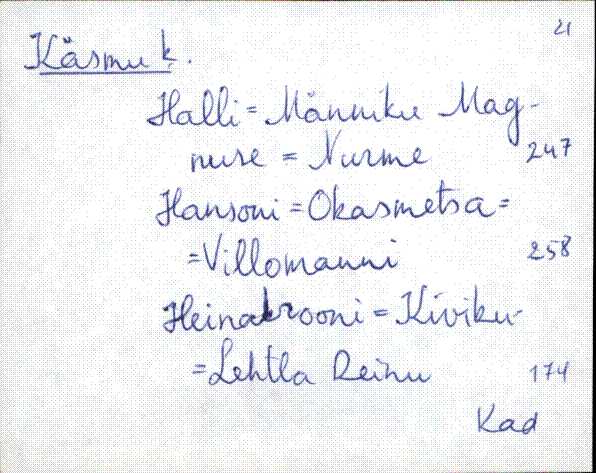 21
Käsmu k.
Halli = Männiku Mag-
nuse = Nurme 247
Hansoni = Okasmetsa =
= Villomanni 258
Heinakrooni = Kiviku-
= Lehtla Reinu 174
Kad